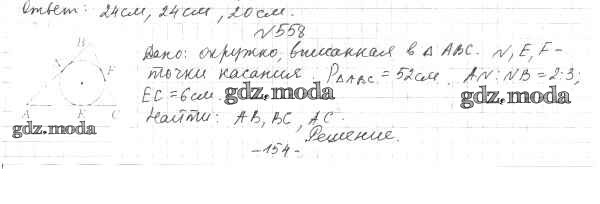 Ответ: 24см, 24см, 20см.
№558
Дано: окружно, вписанная в Δ ABC. N, E, F-
точки касания. P△ABC = 52см. AN:NB = 2:3;
EC = 6см.
gdz.moda
gdz.moda
Найти: AB, BC, AC.
Решение.
-154-
B
N
F
A
E
C
gdz.moda